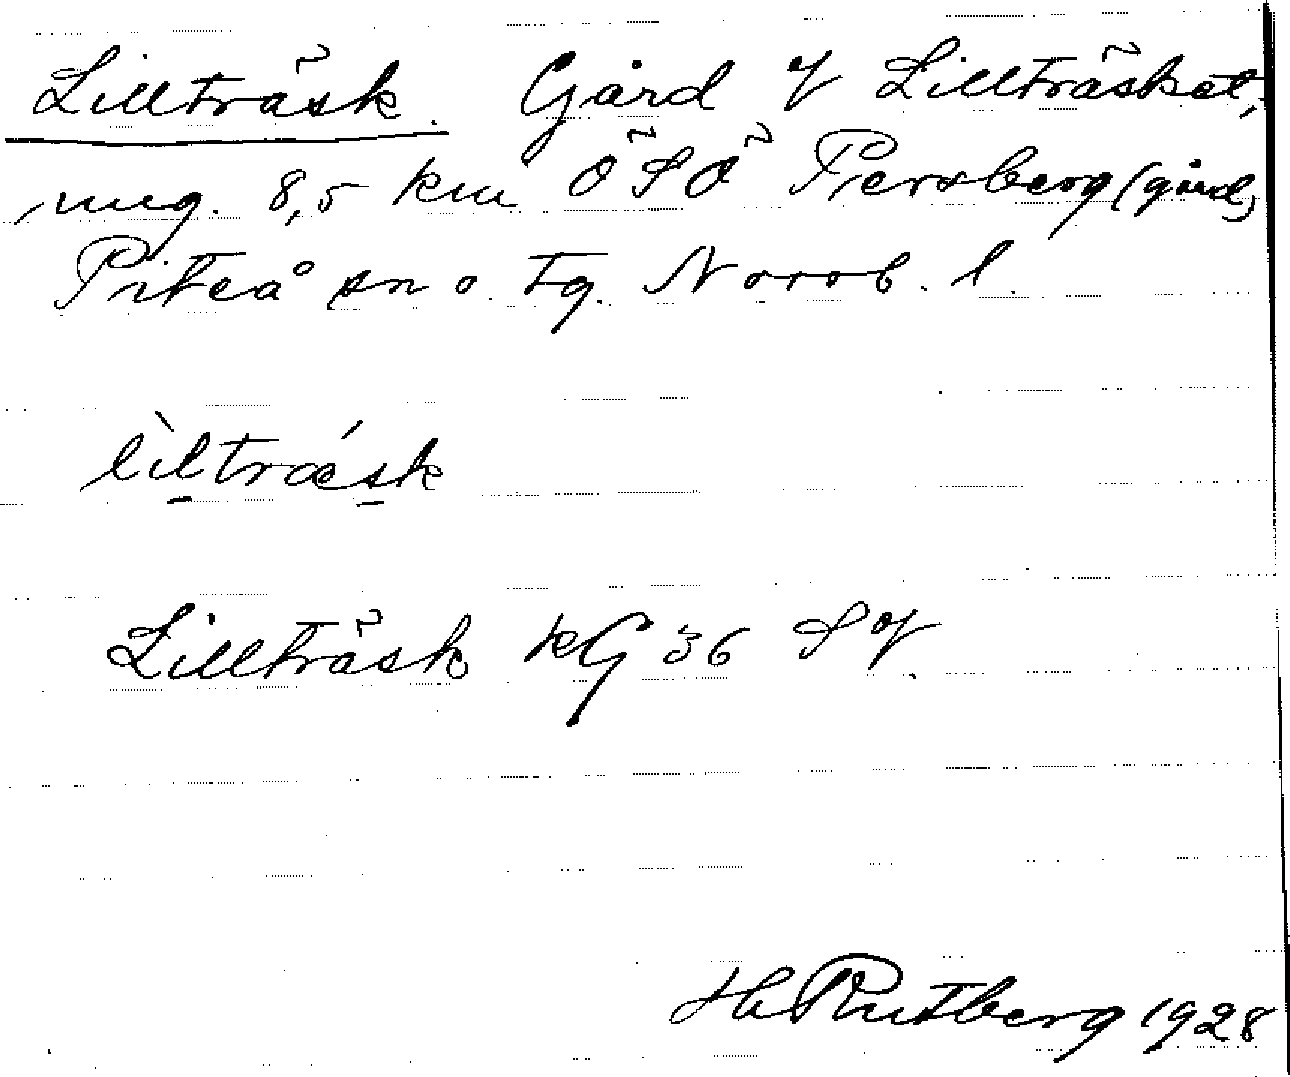 Lillträsk. Gård V Lillträsket,
ung. 8,5 km ÖSÖ Persberg (gård)
Piteå sn o. tg. Norrb. l.
lìltræ´sk
Lillträsk kG 36 SV
H Rutberg 1928